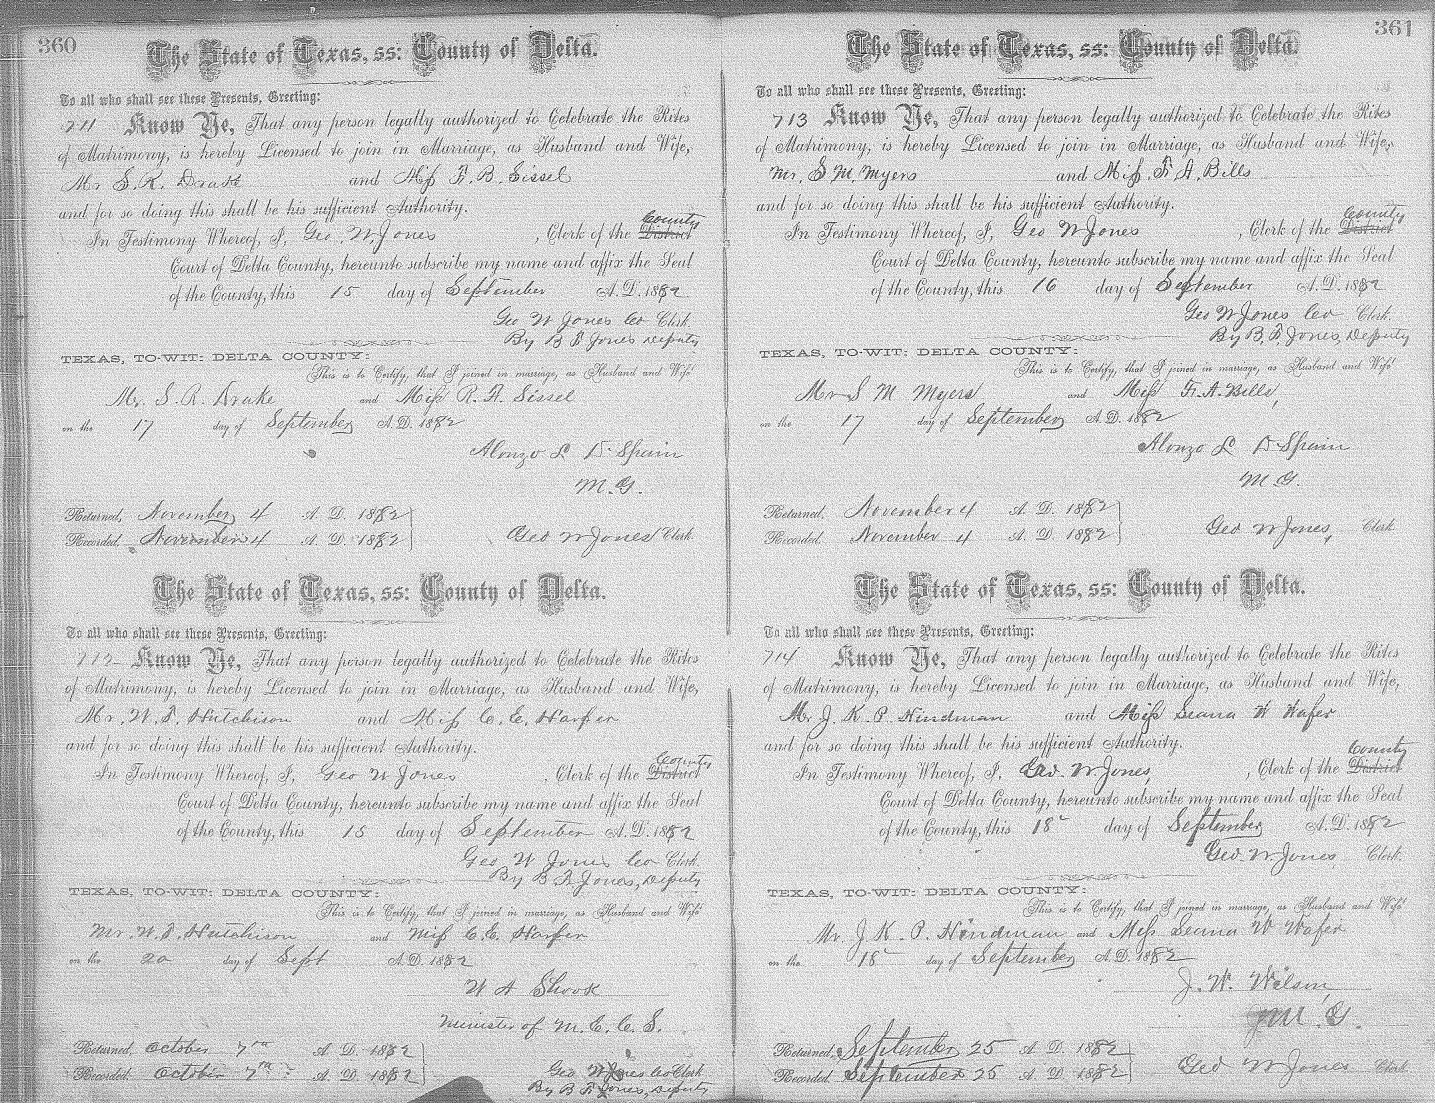 360
The State of Texas, ss: County of Delta.
To all who shall see these Presents, Greeting:
711 Know Ye, That any person legally authorized to Celebrate the Rites
of Matrimony, is hereby Licensed to join in Marriage, as Husband and Wife,
Mr S. R. Drake and Miss F. B. Sissel
and for so doing this shall be his sufficient Authority.
In Testimony Whereof, I, Geo. W. Jones, Clerk of the District County
Court of Delta County, hereunto subscribe my name and affix the Seal
of the County, this 15 day of September A.D. 1882
Geo W Jones Co Clerk.
By B F Jones Deputy
TEXAS, TO-WIT: DELTA COUNTY:
This is to Certify, that I joined in marriage, as Husband and Wife
Mr. S. R. Drake and Miss R. A. Sissel
on the 17 day of September A.D. 1882
Alonzo L D Spain
M. G.
Returned, November 4 A. D. 1882
Recorded. November 4 A. D. 1882 Geo W Jones Clerk.
The State of Texas, ss: County of Delta.
To all who shall see these Presents, Greeting:
712 Know Ye, That any person legally authorized to Celebrate the Rites
of Matrimony, is hereby Licensed to join in Marriage, as Husband and Wife,
Mr. W. F. Hutchison and Miss C. E. Harper
and for so doing this shall be his sufficient Authority.
In Testimony Whereof, I, Geo W Jones, Clerk of the District County
Court of Delta County, hereunto subscribe my name and affix the Seal
of the County, this 15 day of September A.D. 1882
Geo. W Jones Co Clerk.
By B F Jones, Deputy
TEXAS, TO-WIT: DELTA COUNTY:
This is to Certify, that I joined in marriage, as Husband and Wife
Mr. W. F. Hutchison and Miss C. E. Harper
on the 20 day of Sept A.D. 1882
W A Shook
Minister of M. E. C. S.
Returned, October 7th A. D. 1882
Recorded. October 7th A. D. 1882 Geo W Jones Co Clerk
By B F Jones, Deputy
361
The State of Texas, ss: County of Delta.
To all who shall see these Presents, Greeting:
713 Know Ye, That any person legally authorized to Celebrate the Rites
of Matrimony, is hereby Licensed to join in Marriage, as Husband and Wife,
Mr. S M. Myers and Miss. F. A. Bills
and for so doing this shall be his sufficient Authority.
In Testimony Whereof, I, Geo W Jones, Clerk of the District County
Court of Delta County, hereunto subscribe my name and affix the Seal
of the County, this 16 day of September A.D. 1882
Geo W Jones Co Clerk.
By B. F Jones, Deputy
TEXAS, TO-WIT: DELTA COUNTY:
This is to Certify, that I joined in marriage, as Husband and Wife
Mr S M Myers and Miss F. A. Bills,
on the 17 day of September A.D. 1882
Alonzo L D Spain
M G.
Returned, November 4 A. D. 1882
Recorded. November 4 A. D. 1882 Geo W Jones, Clerk
The State of Texas, ss: County of Delta.
To all who shall see these Presents, Greeting:
714 Know Ye, That any person legally authorized to Celebrate the Rites
of Matrimony, is hereby Licensed to join in Marriage, as Husband and Wife,
Mr J. K. P. Hindman and Miss Leana W Wafer
and for so doing this shall be his sufficient Authority.
In Testimony Whereof, I, Geo. W. Jones, Clerk of the District County
Court of Delta County, hereunto subscribe my name and affix the Seal
of the County, this 18 day of September A.D. 1882
Geo. W Jones Clerk.
TEXAS, TO-WIT: DELTA COUNTY:
This is to Certify, that I joined in marriage, as Husband and Wife
Mr. J. K. P. Hindman and Miss Leana W Wafer
on the 18 day of September A.D. 1882
J. W. Wilson
M. G.
Returned, September 25 A. D. 1882
Recorded. September 25 A. D. 1882 Geo W Jones Clerk